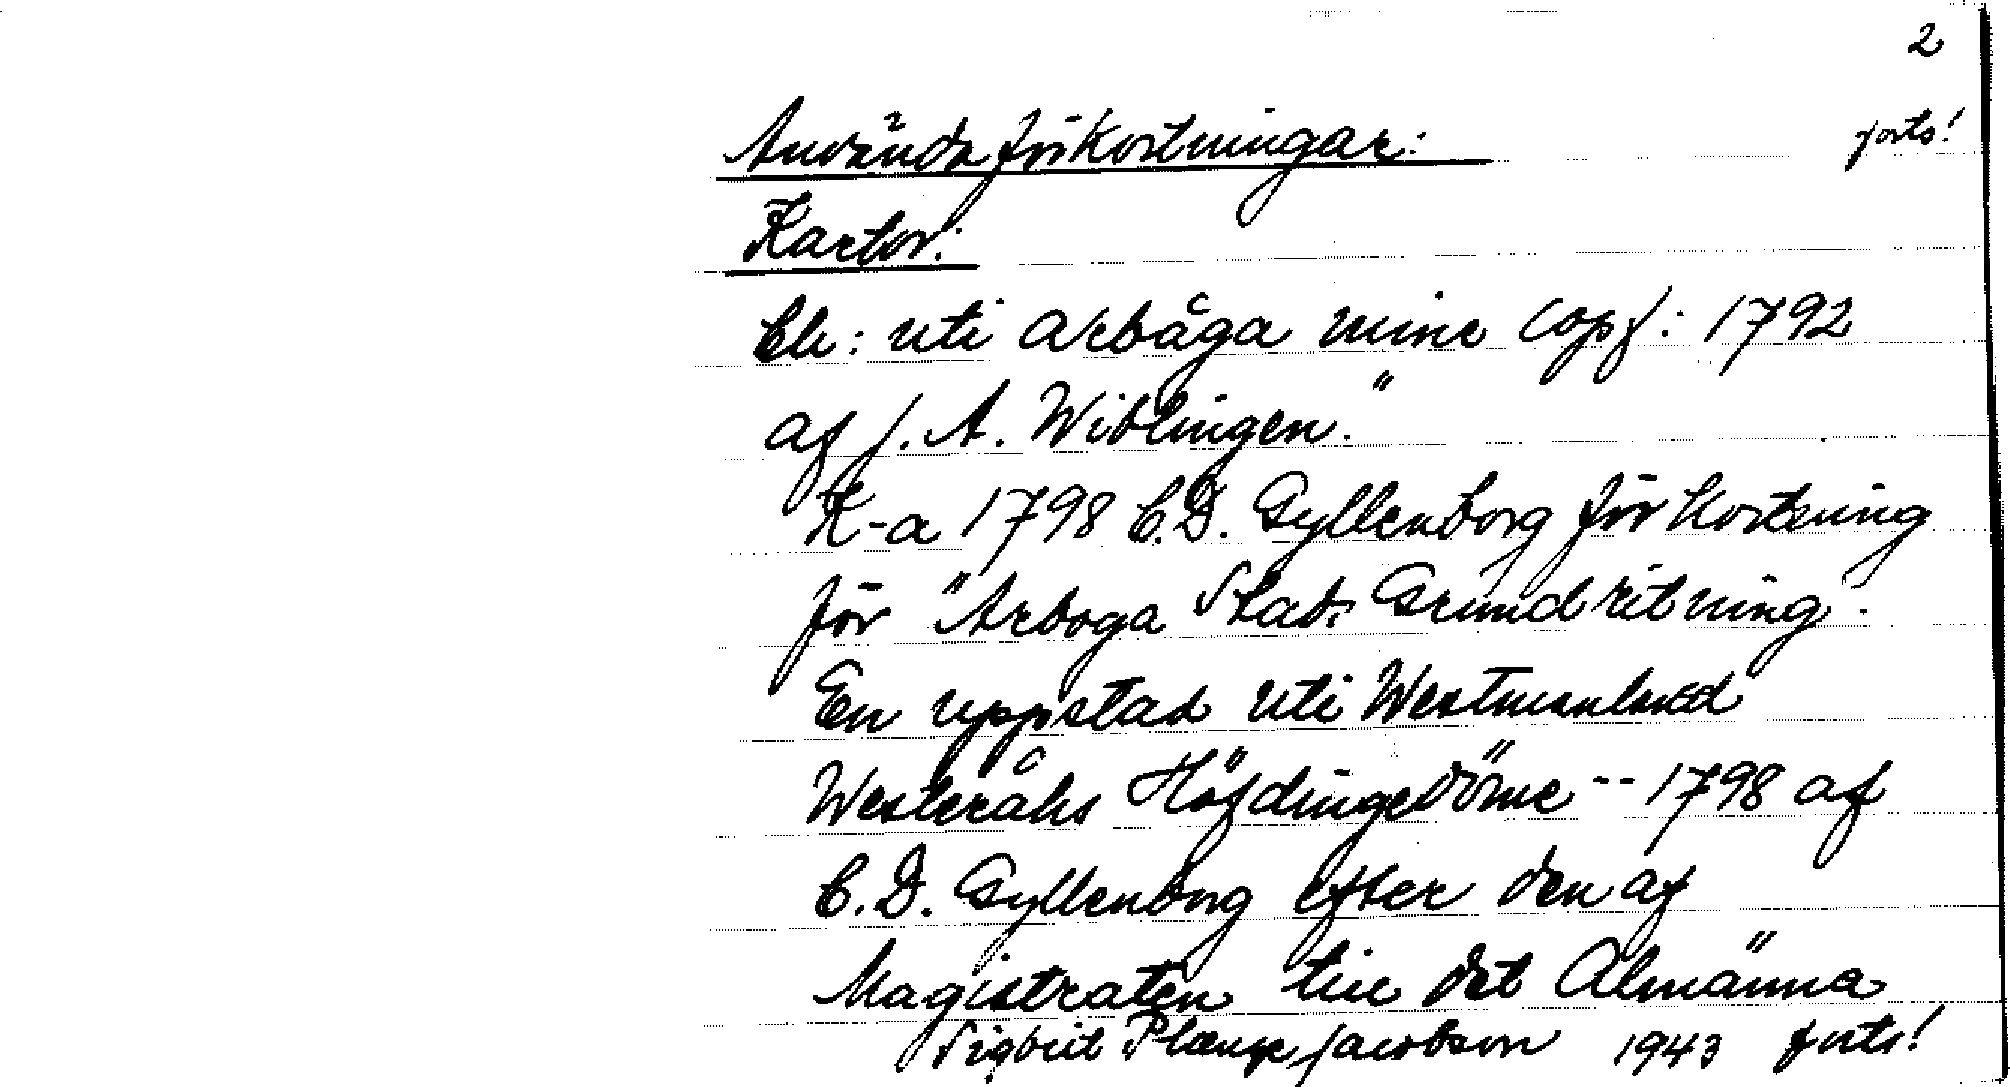 2
Använda förkortningar: forts!
Kartor:
Ele: uti Arbåga minc Copj: 1792
af J. A. Wiblingen."
K-a 1798 C.D. Gyllenborg förkortning
för "Arboga Stads Grundritning.
En uppstad uti Westmanland
Westeråhs Höfdingedöme -- 1798 af
C.D. Gyllenborg efter den af
Magistraten till det Almänna
Sigbrit Plænge Jacobson 1943 forts!